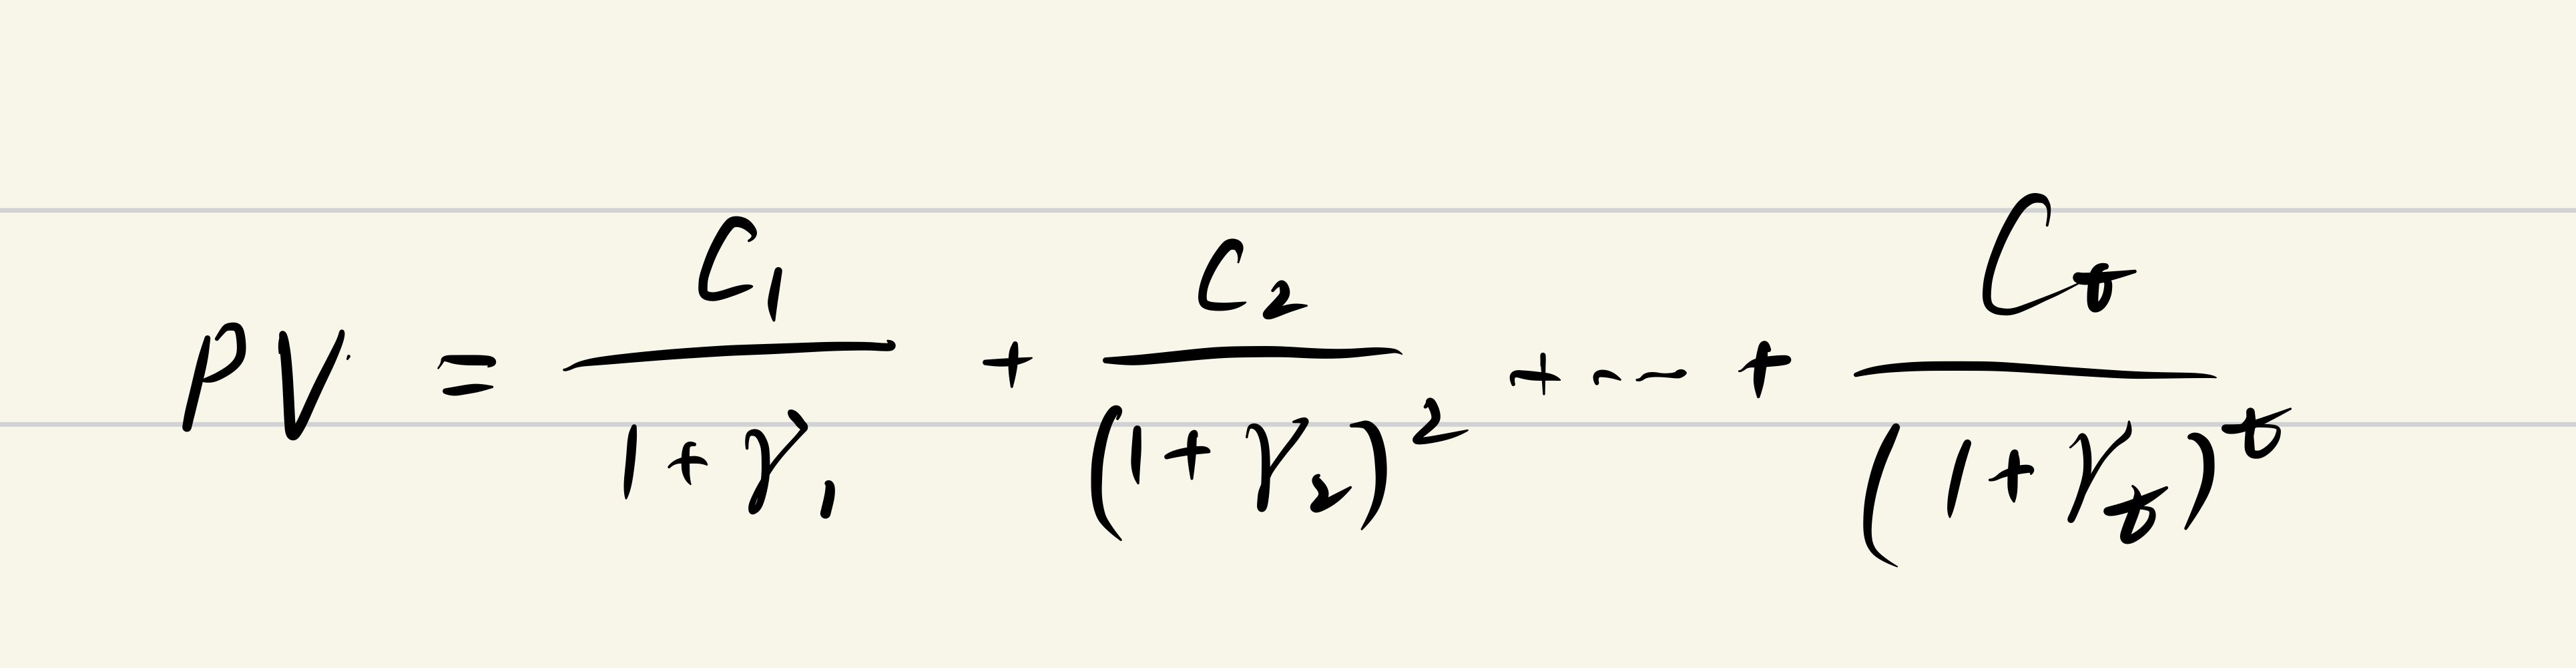 PV = C₁/(1+γ₁) + C₂/(1+γ₂)² + -- + Cₜ/(1+γₜ)ᵗ